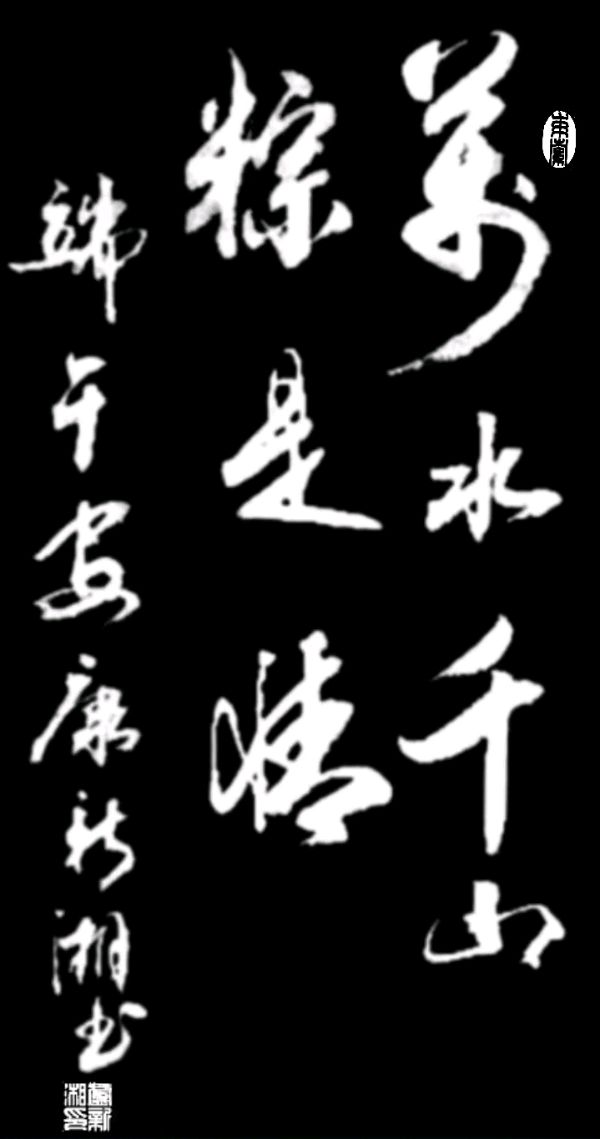 萬水千山
粽是情
端午安康新湘书